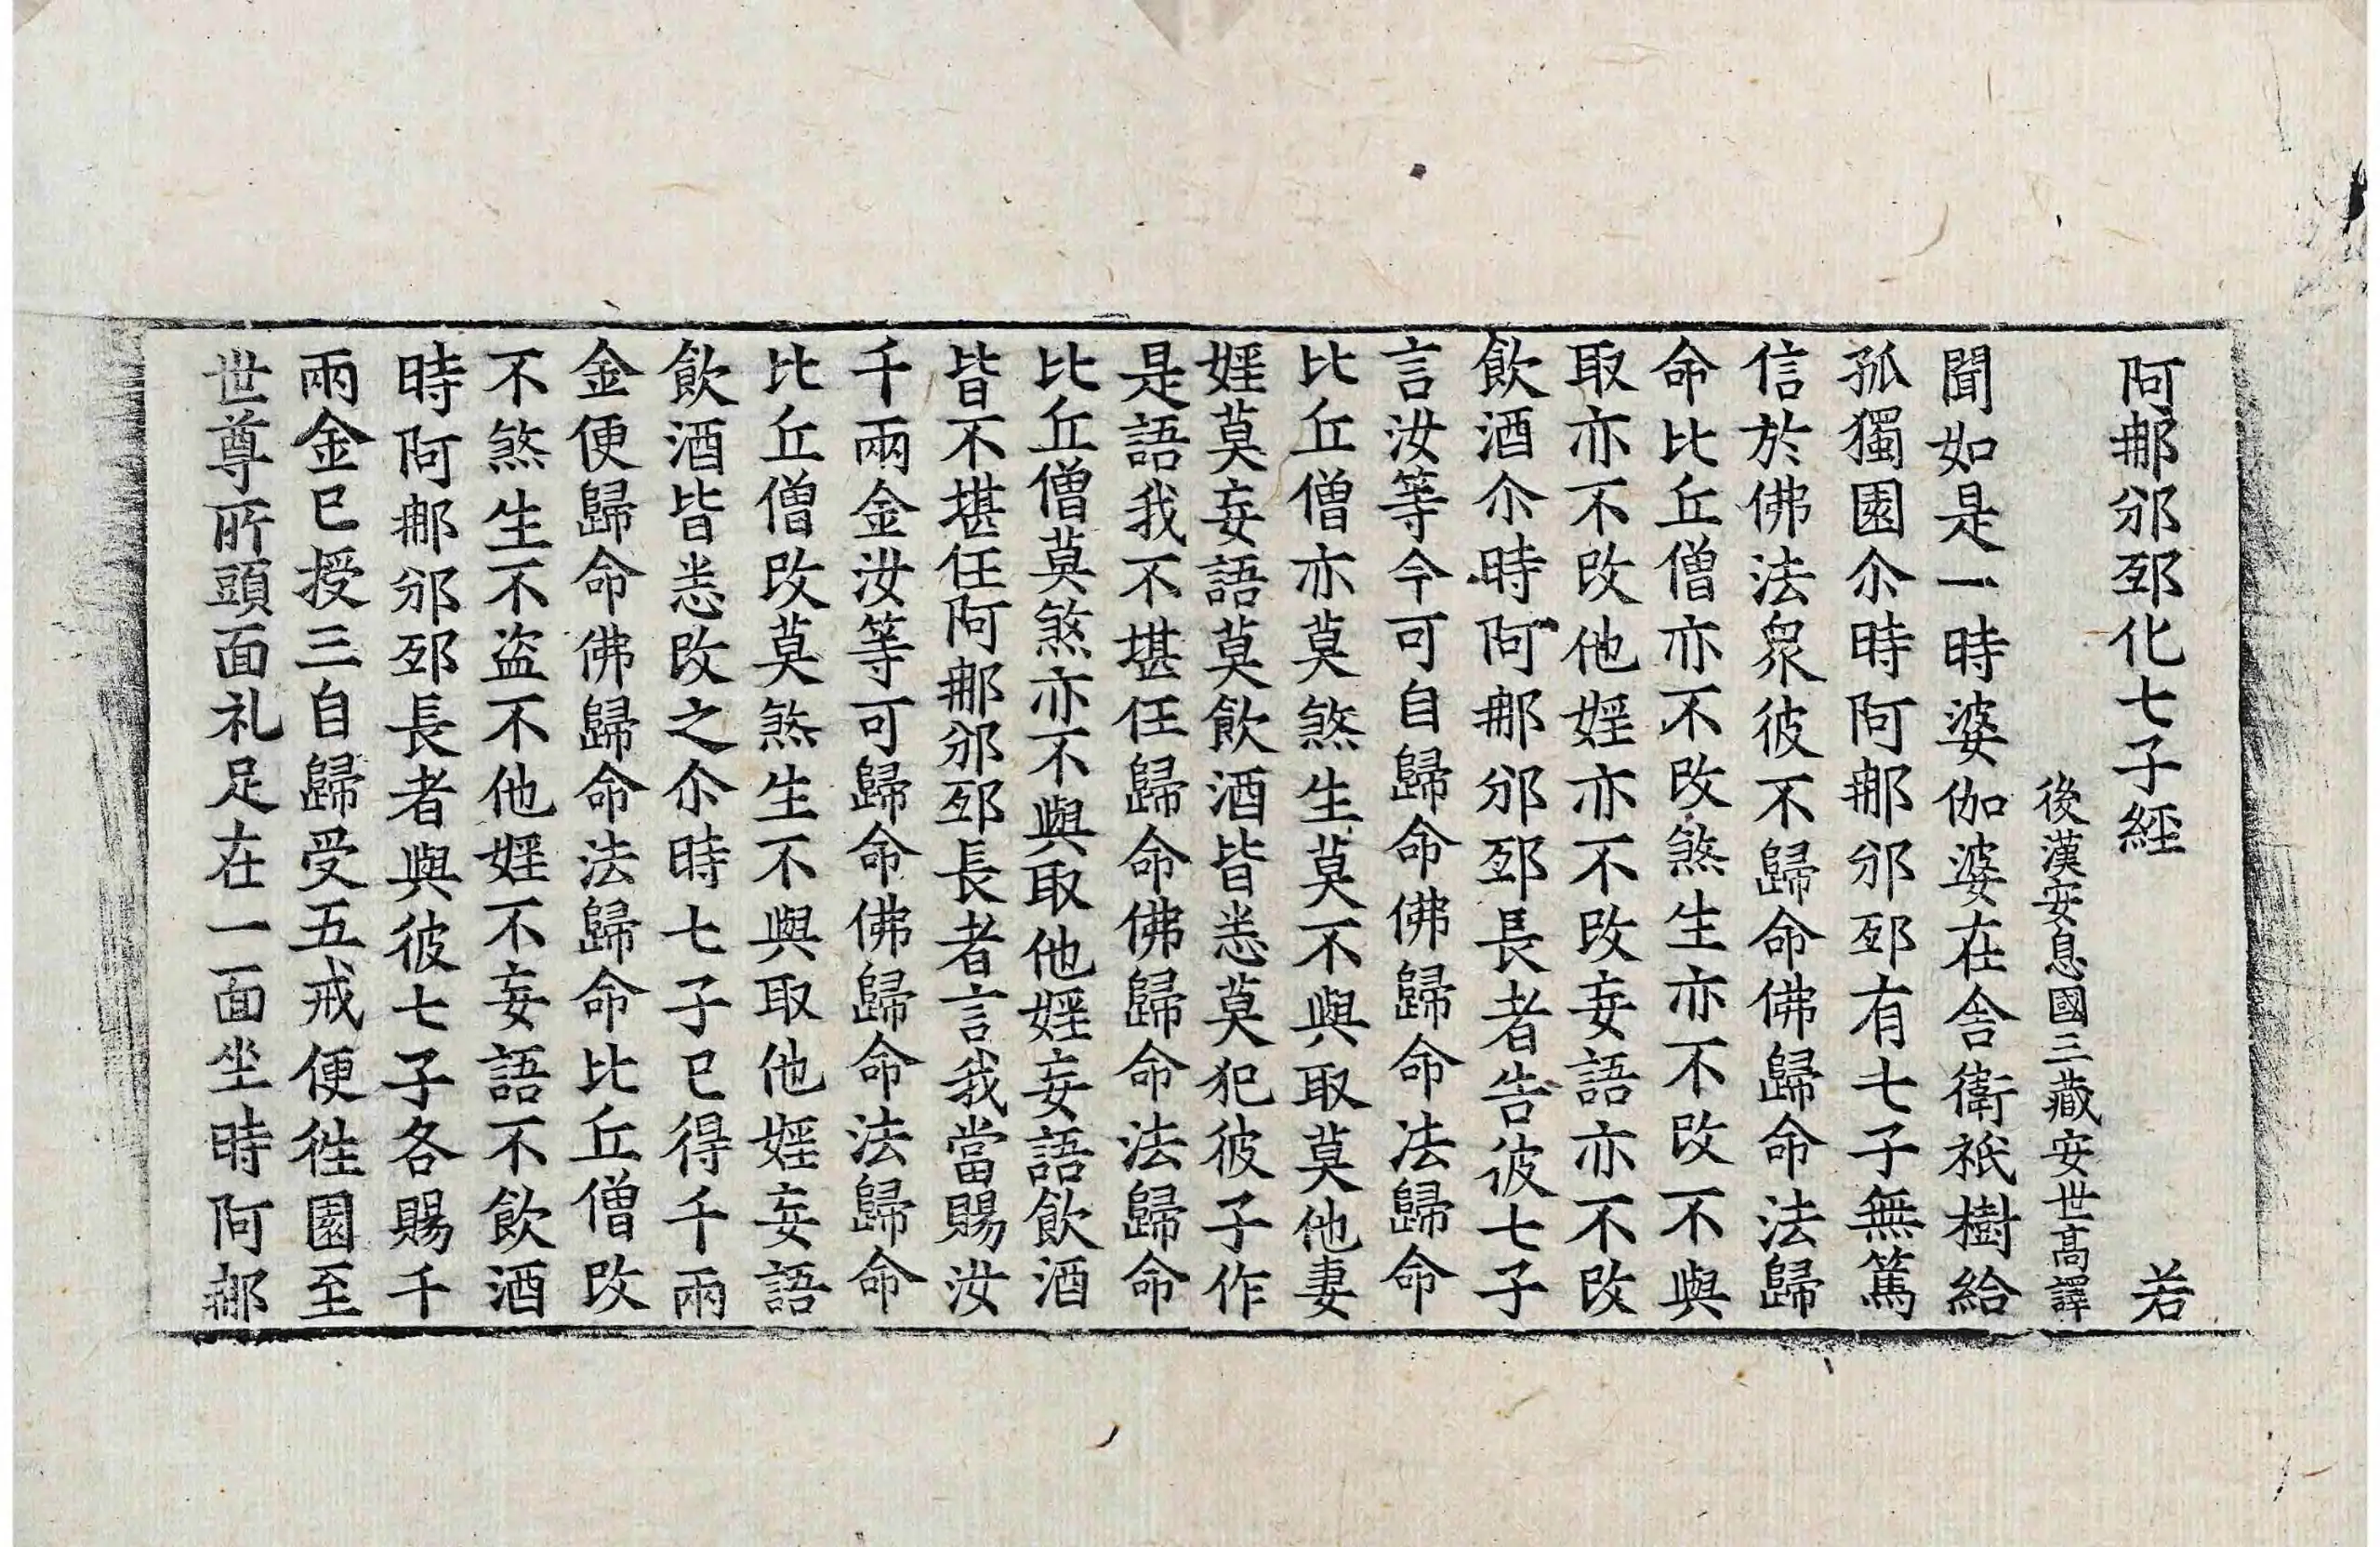 阿𨚗邠邳化七子經 若
後漢安息國三藏安世高譯
聞如是一時婆伽婆在舍衛祇樹給
孤獨園尒時阿𨚗邠邳有七子無篤
信於佛法衆彼不歸命佛歸命法歸
命比丘僧亦不改煞生亦不改不與
取亦不改他婬亦不改妄語亦不改
飲酒尒時阿𨚗邠邳長者告彼七子
言汝等今可自歸命佛歸命法歸命
比丘僧亦莫煞生莫不與取莫他妻
婬莫妄語莫飲酒皆悉莫犯彼子作
是語我不堪任歸命佛歸命法歸命
比丘僧莫煞亦不與取他婬妄語飲酒
皆不堪任阿𨚗邠邳長者言我當賜汝
千兩金汝等可歸命佛歸命法歸命
比丘僧改莫煞生不與取他婬妄語
飲酒皆悉改之尒時七子已得千兩
金便歸命佛歸命法歸命比丘僧改
不煞生不盜不他婬不妄語不飲酒
時阿𨚗邠邳長者與彼七子各賜千
兩金已授三自歸受五戒便徃園至
世尊所頭面礼足在一面坐時阿𨚗